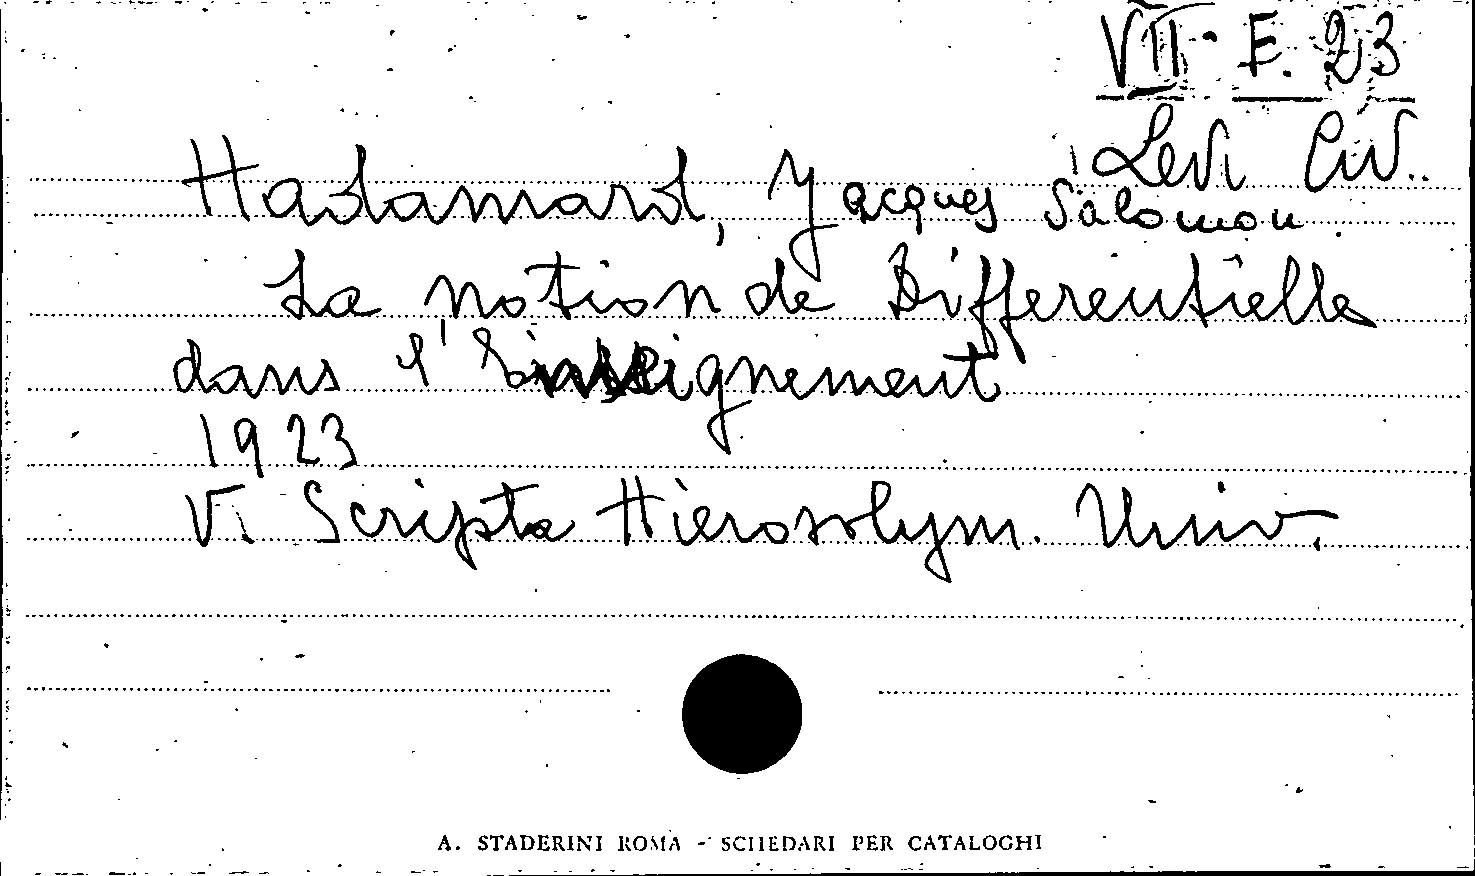 VII. E. 23
Levi Civ..
Hadamard, Jacques Salomon.
La notion de Differentielle
dans l'Enseignement
1923
V. Scripta Hierosolym. Univ.
A. STADERINI ROMA - SCHEDARI PER CATALOGHI